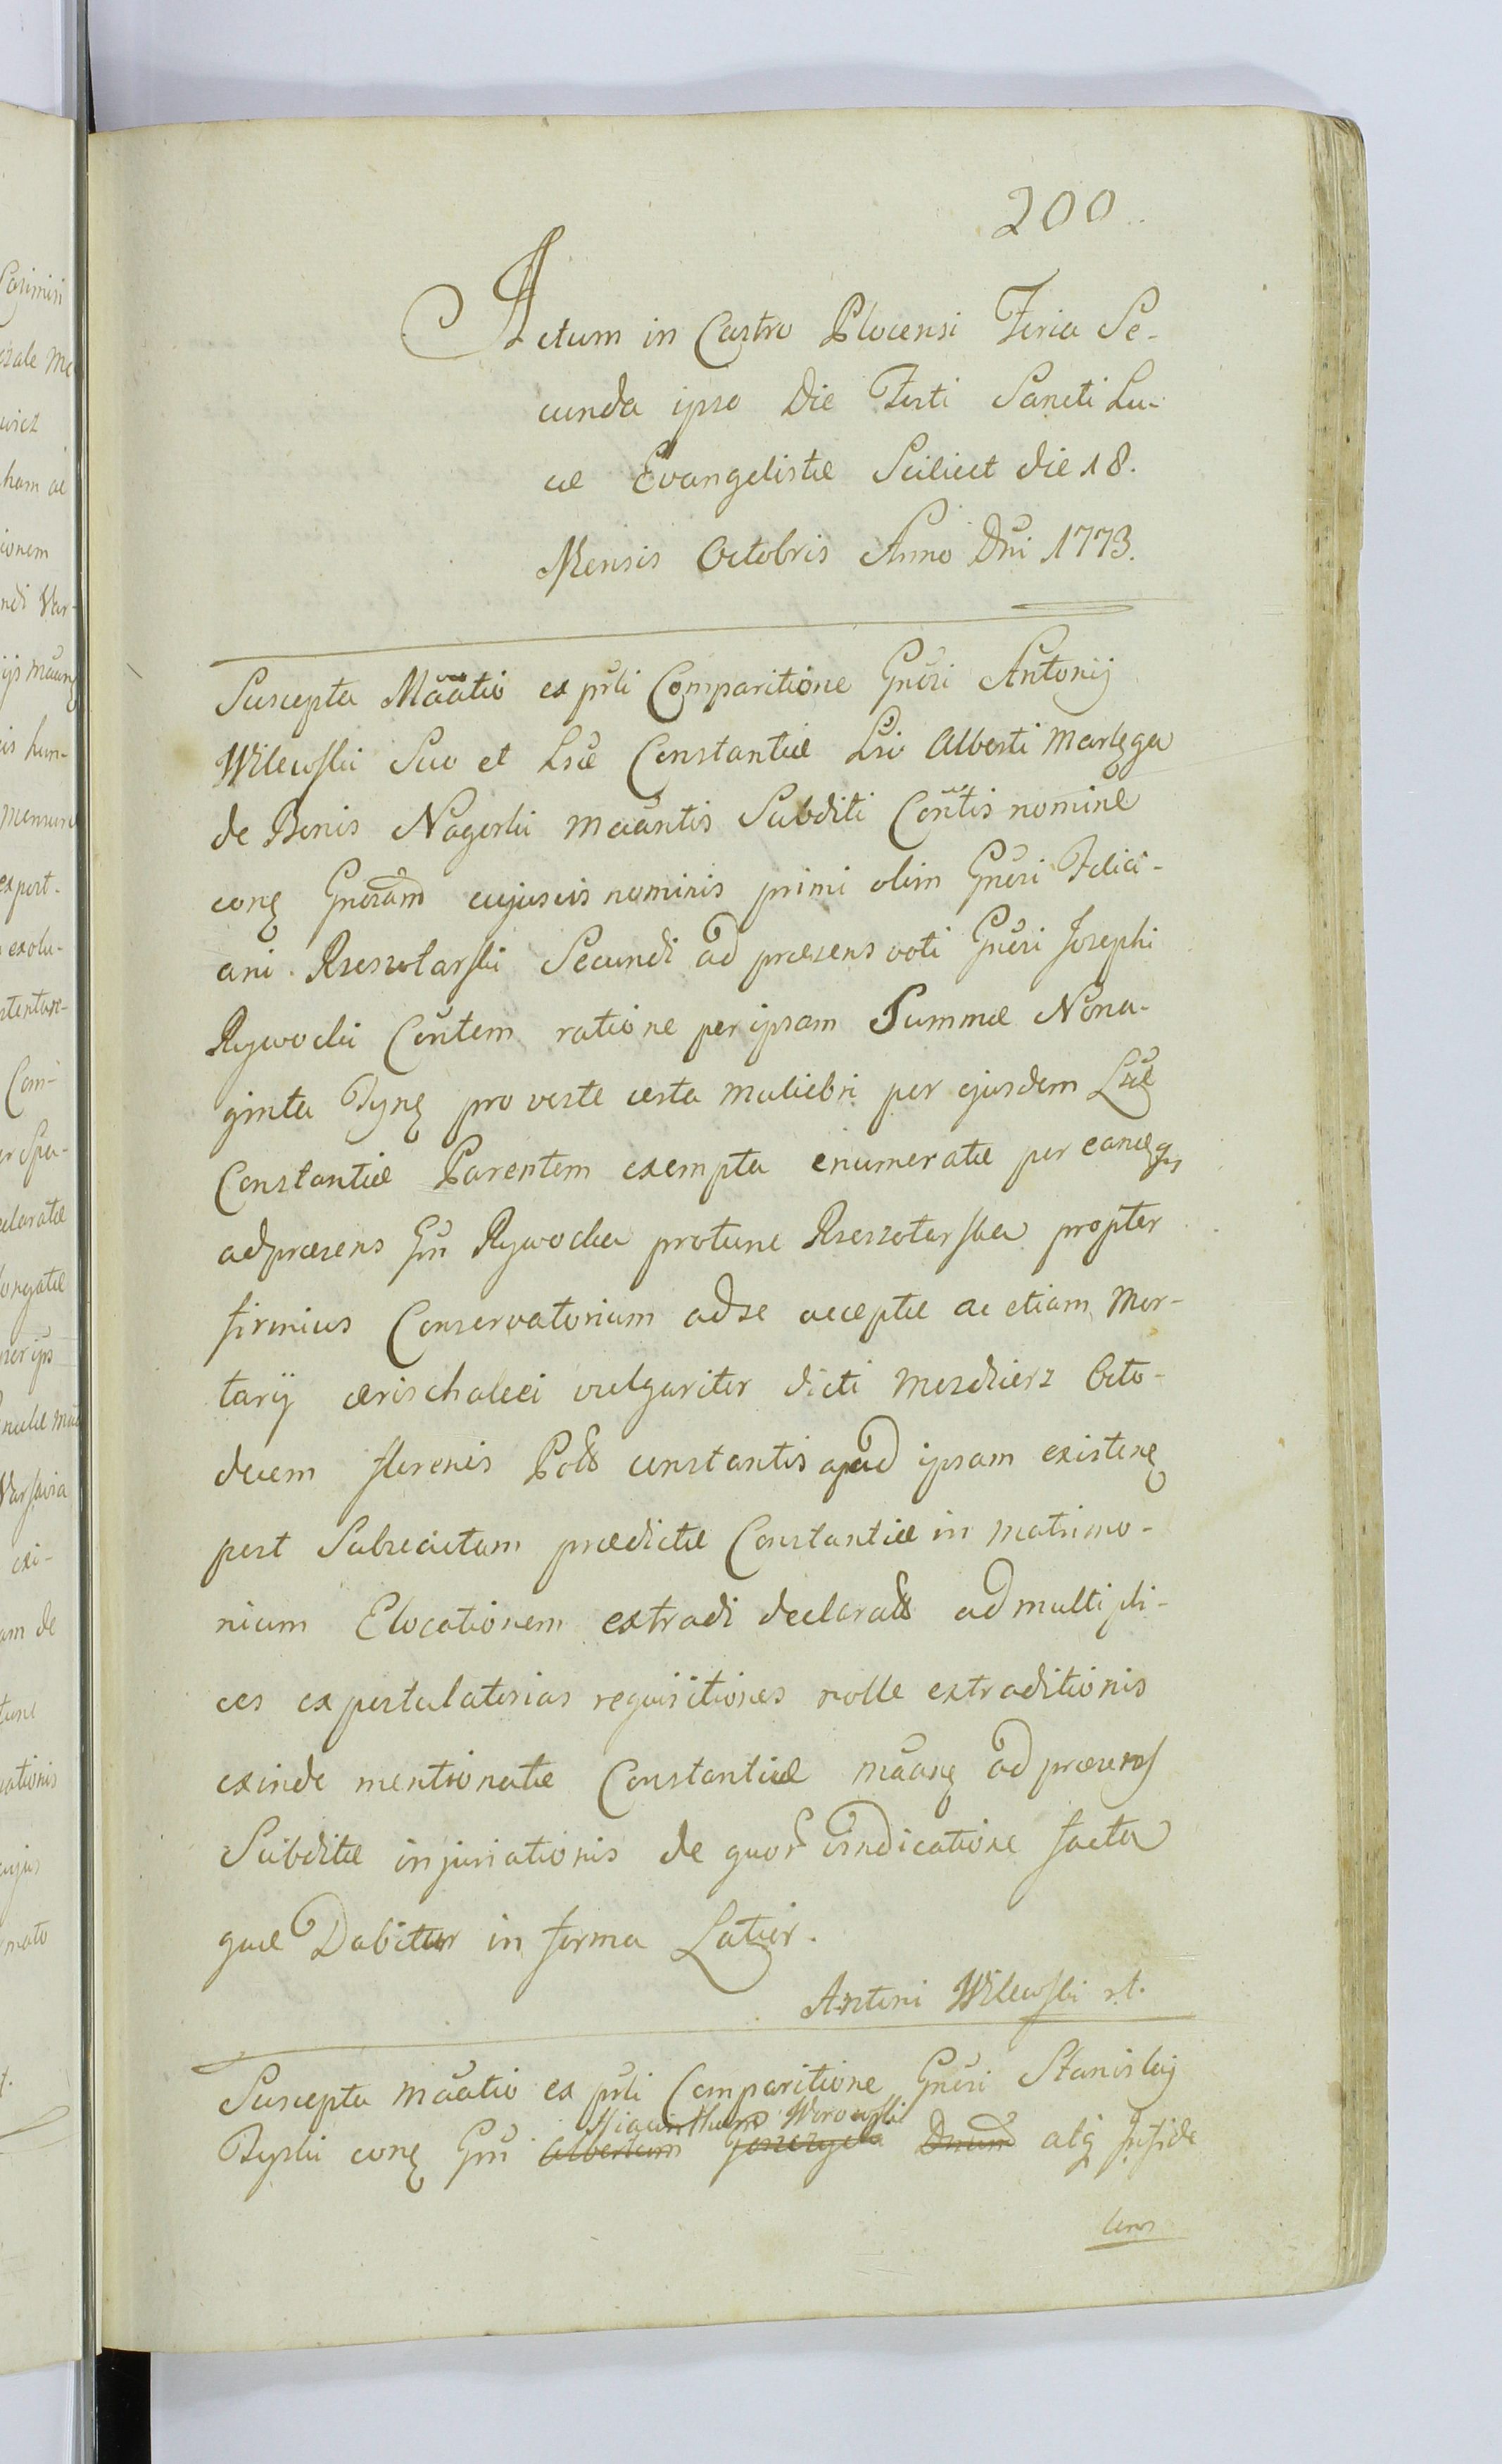 200
Actum in Castro Plocensi Feria Se-
cunda ipso Die Festi Sancti Lu-
cæ Evangelistæ Scilicet die 18.
Mensis Octobris Anno Dni 1773.
Suscepta Maãtio ex prli Comparitione Gnõsi Antonij
Wilewski Suo et Lsæ Constantiæ Lsi Alberti Marlęga
de Bonis Nagorki maãntis Subditi Coñtis nomine
conę Gnõsam cujusvis nominis primi olim Gnõsi Felici-
ani Rzeszotarski Secundi ad præsens voti Gnõsi Josephi
Rywocki Coñtem ratione per ipsam Summæ Nona-
ginta Tynę pro veste certa muliebri per ejusdem Lsæ
Constantiæ Parentem exempta enumeratæ per eamqꝫ
ad præsens Gñ Rywocka protunc Rzeszotarska propter
firmius Conservatorium ad se acceptæ ac etiam Mor-
tarij ærischalcei vulgariter dicti Mozdzierz Octo-
decem florenis Poll constantis apud ipsam existenę
post Subsecutam prædictæ Constantiæ in matrimo-
nium Elocationem extradi declarass ad multipli-
ces expostulatorias requisitiones nolle extraditionis
exinde mentionatæ Constantiæ maãnę ad præsens
Subditæ injuriationis de quor vindicatione facta
quæ Dabitur in forma Latior.
Antoni Wilewski rt.
Suscepta maãtio ex prli Comparitione Gnõsi Stanislaij
Hiacinthum Worowski
Byski conę Gñ Albertum Dnum alq Inside